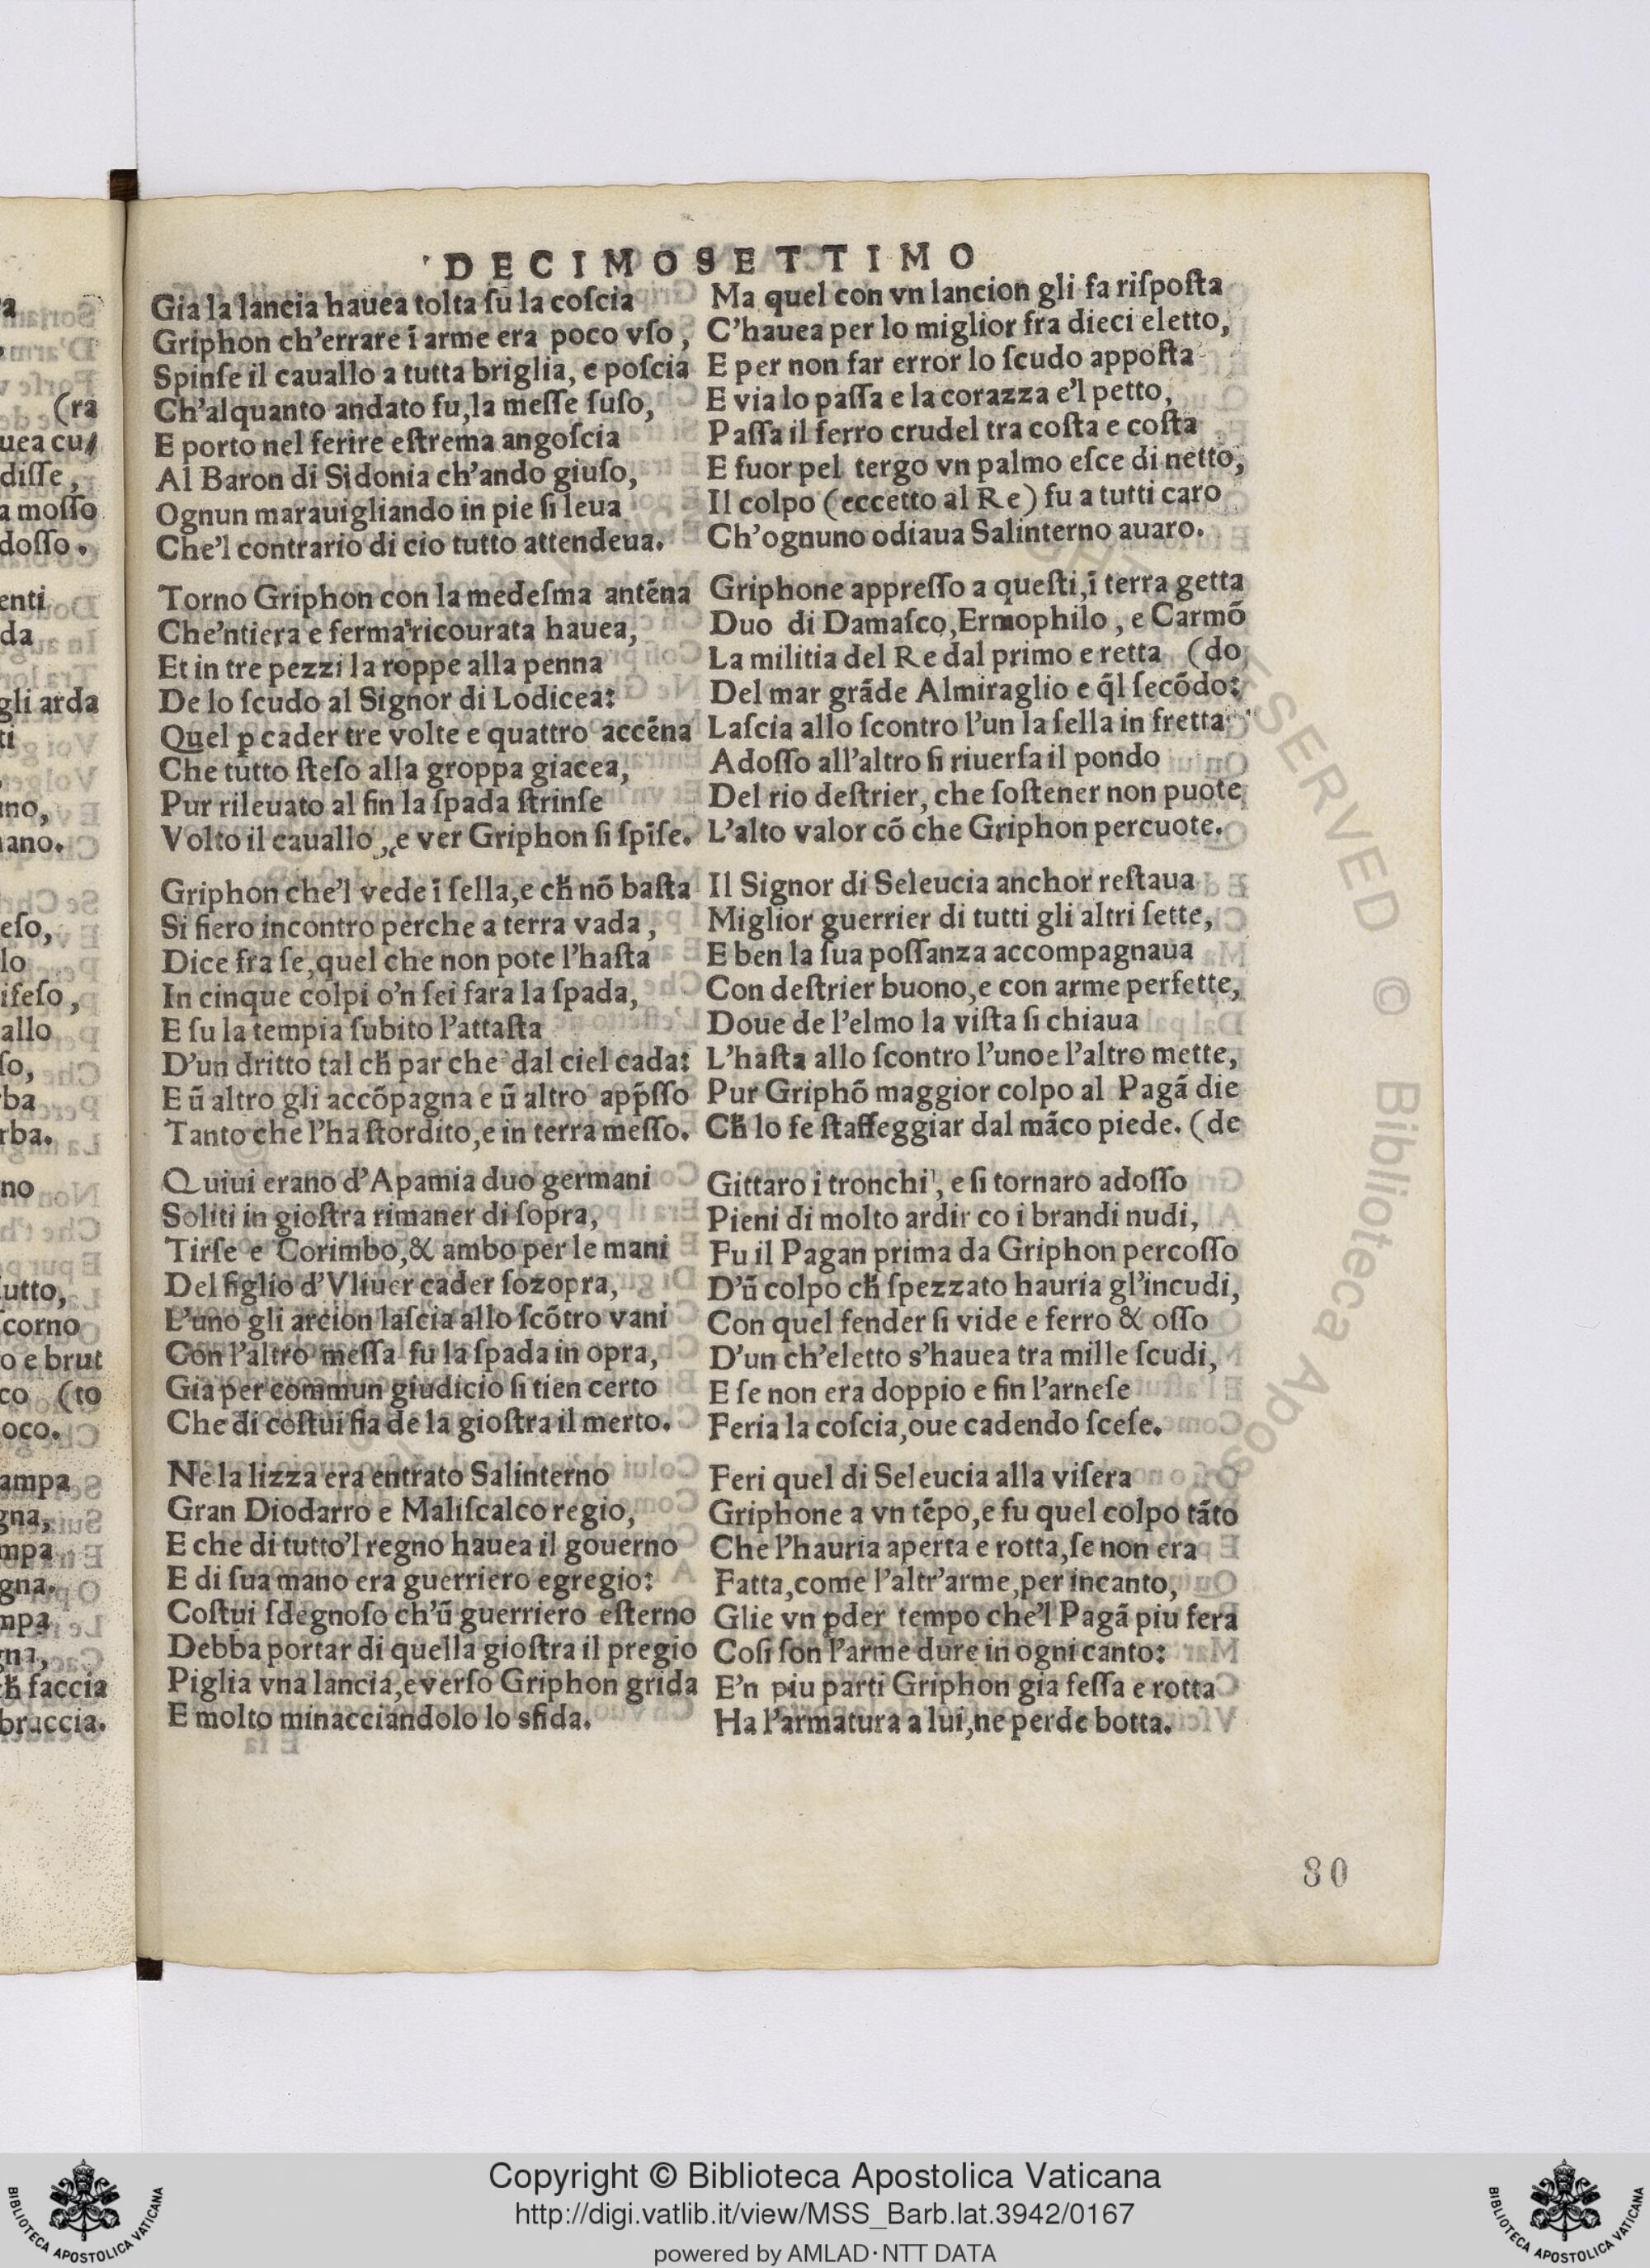 DECIMOSETTIMO
Gia la lancia hauea tolta ſu la coſcia
Griphon ch'errare ī arme era poco vſo,
Spinſe il cauallo a tutta briglia, e poſcia
Ch'alquanto andato fu, la meſſe ſuſo,
E porto nel ferire eſtrema angoſcia
Al Baron di Sidonia ch'ando giuſo,
Ognun marauigliando in pie ſi leua
Che'l contrario di cio tutto attendeua.
Torno Griphon con la medeſma antēna
Che'ntiera e ferma ricourata hauea,
Et in tre pezzi la roppe alla penna
De lo ſcudo al Signor di Lodicea:
Quel ꝑ cader tre volte e quattro accēna
Che tutto ſteſo alla groppa giacea,
Pur rileuato al fin la ſpada ſtrinſe
Volto il cauallo, e ver Griphon ſi ſpīſe.
Griphon che'l vede ī ſella, e cħ nō baſta
Si fiero incontro perche a terra vada,
Dice fra ſe, quel che non pote l'haſta
In cinque colpi o'n ſei fara la ſpada,
E ſu la tempia ſubito l'attaſta
D'un dritto tal cħ par che dal ciel cada:
E ū altro gli accōpagna e ū altro app̄ſſo
Tanto che l'ha ſtordito, e in terra meſſo.
Quiui erano d'Apamia duo germani
Soliti in gioſtra rimaner di ſopra,
Tirſe e Corimbo, & ambo per le mani
Del figlio d'Vliuer cader ſozopra,
L'uno gli arcion laſcia allo ſcōtro vani
Con l'altro meſſa fu la ſpada in opra,
Gia per commun giudicio ſi tien certo
Che di coſtui fia de la gioſtra il merto.
Ne la lizza era entrato Salinterno
Gran Diodarro e Maliſcalco regio,
E che di tutto'l regno hauea il gouerno
E di ſua mano era guerriero egregio:
Coſtui ſdegnoſo ch'ū guerriero eſterno
Debba portar di quella gioſtra il pregio
Piglia vna lancia, e verſo Griphon grida
E molto minacciandolo lo sfida.
Ma quel con vn lancion gli fa riſpoſta
C'hauea per lo miglior fra dieci eletto,
E per non far error lo ſcudo appoſta
E via lo paſſa e la corazza e'l petto,
Paſſa il ferro crudel tra coſta e coſta
E fuor pel tergo vn palmo eſce di netto,
Il colpo (eccetto al Re) fu a tutti caro
Ch'ognuno odiaua Salinterno auaro.
Griphone appreſſo a queſti, ī terra getta
Duo di Damaſco, Ermophilo, e Carmō
La militia del Re dal primo e retta (do
Del mar grāde Almiraglio e q̄l ſecōdo:
Laſcia allo ſcontro l'un la ſella in fretta
Adoſſo all'altro ſi riuerſa il pondo
Del rio deſtrier, che ſoſtener non puote
L'alto valor cō che Griphon percuote.
Il Signor di Seleucia anchor reſtaua
Miglior guerrier di tutti gli altri ſette,
E ben la ſua poſſanza accompagnaua
Con deſtrier buono, e con arme perfette,
Doue de l'elmo la viſta ſi chiaua
L'haſta allo ſcontro l'uno e l'altro mette,
Pur Griphō maggior colpo al Pagā die
Cħ lo fe ſtaffeggiar dal māco piede. (de
Gittaro i tronchi, e ſi tornaro adoſſo
Pieni di molto ardir co i brandi nudi,
Fu il Pagan prima da Griphon percoſſo
D'ū colpo cħ ſpezzato hauria gl'incudi,
Con quel fender ſi vide e ferro & oſſo
D'un ch'eletto s'hauea tra mille ſcudi,
E ſe non era doppio e fin l'arneſe
Feria la coſcia, oue cadendo ſceſe.
Feri quel di Seleucia alla viſera
Griphone a vn tēpo, e fu quel colpo tāto
Che l'hauria aperta e rotta, ſe non era
Fatta, come l'altr'arme, per incanto,
Glie vn ꝑder tempo che'l Pagā piu fera
Coſi ſon l'arme dure in ogni canto:
E'n piu parti Griphon gia feſſa e rotta
Ha l'armatura a lui, ne perde botta.
80
Copyright © Biblioteca Apostolica Vaticana
http://digi.vatlib.it/view/MSS_Barb.lat.3942/0167
powered by AMLAD·NTT DATA
BIBLIOTECA APOSTOLICA VATICANA
BIBLIOTECA APOSTOLICA VATICANA